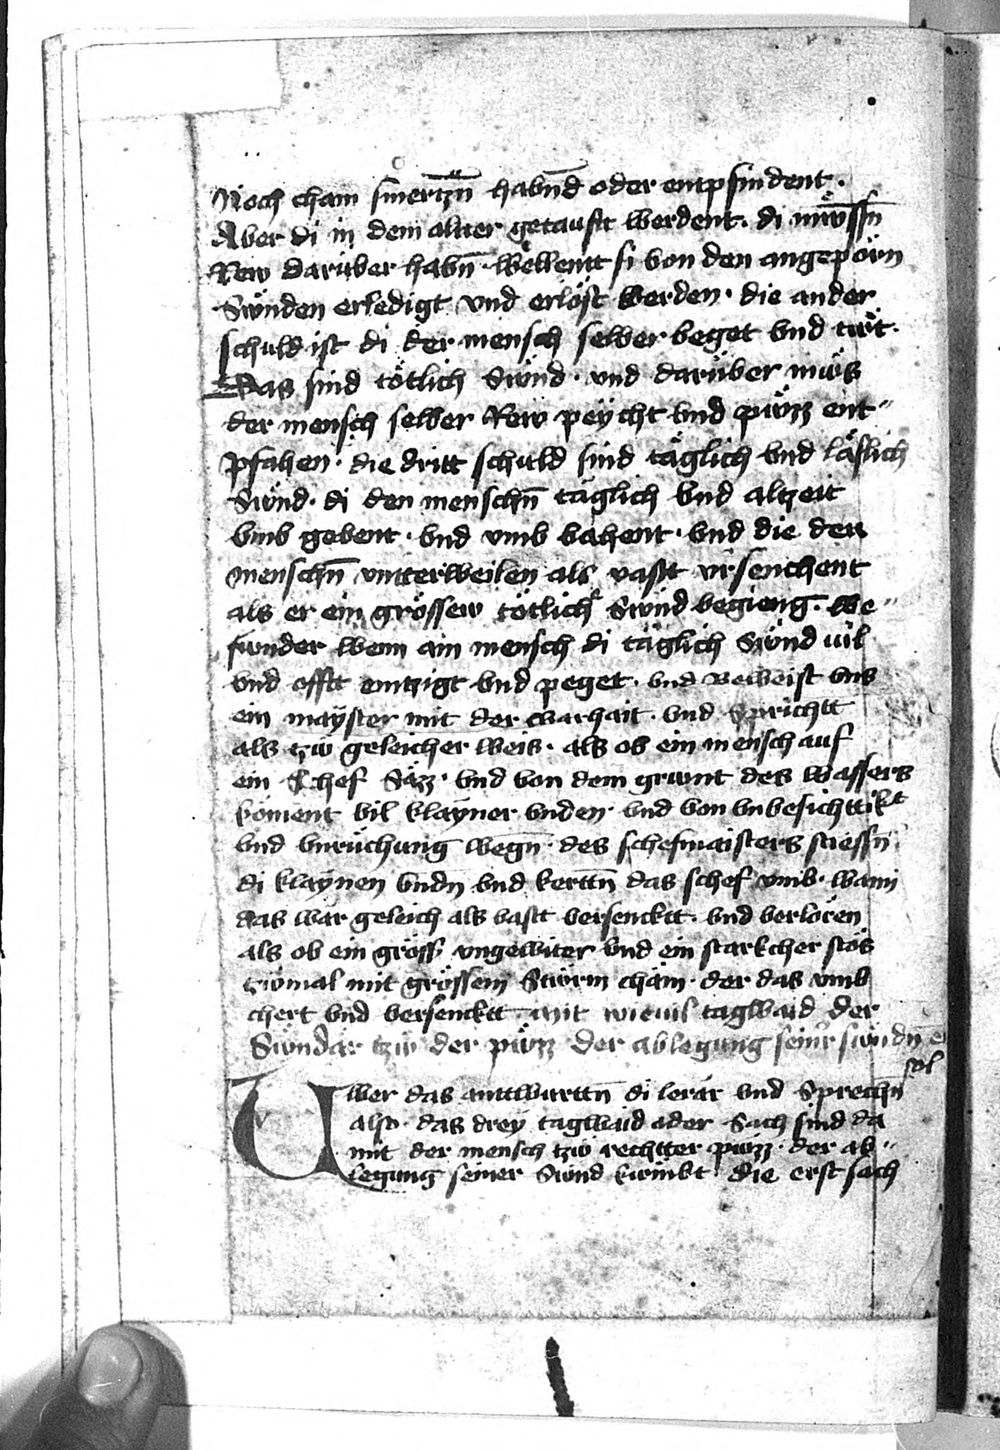 Noch cham smertzn̄ habnd̄ oder entpfindent.
Aber di in dem alter getaufft werdent. di müssn̄
Rew darüber habn̄. wellentt si von den angeporn
Sünden erledigt vnd erlöst werden. die ander
schuld ist di der mensch selber beget vnd tüt.
Das sind tötlich Sünd. vnd darüber müs
der mensch selber Rew peycht vnd püzz ent"
pfahen. die dritt schuld sind täglich vnd läslich
Sünd. di den menschn̄ täglich vnd altzeit
vmb gebent. vnd vmb vahent. vnd die den
menschn̄ vntterweilen als vastt v̓senchent
als er ein grössew tötliche Sünd begieng. Be"
sunder wenn ain mensch di täglich Sünd vil
vnd offtt emtzigt vnd peget. vnd Beweist vns
ein mayster mit der warhait. vnd Sprichtt
als tzw geleicher weis. als ob ein mensch auf
ein Schef Säzz. vnd von dem grunt des wassers
koment vil klayner vnden. vnd von vnbesichttikt
vnd vnrüchung wegn̄. des schefmaisters stiessn̄
di klaynen vndn̄ vnd kerttn̄ das schef vmb. wann
das wär geleich als vastt versencktt. vnd verloren
als ob ein gröss vngewiter vnd ein starkcher stös
tzwmal mit grössem Stürm chäm. der das vmb
chert vnd versencktt mit wieuil tagwaid der
Sündär tzw der püzz der ablegung seinr̓ sündn̄ 
sol
Uber das anttwurttn̄ di lerär vnd Sprechn̄
also. das drey tagwaid oder Sach sind da
mit der mensch tzw rechtter püzz. der ab"
legung seiner Sünd kümbt. die erst sach